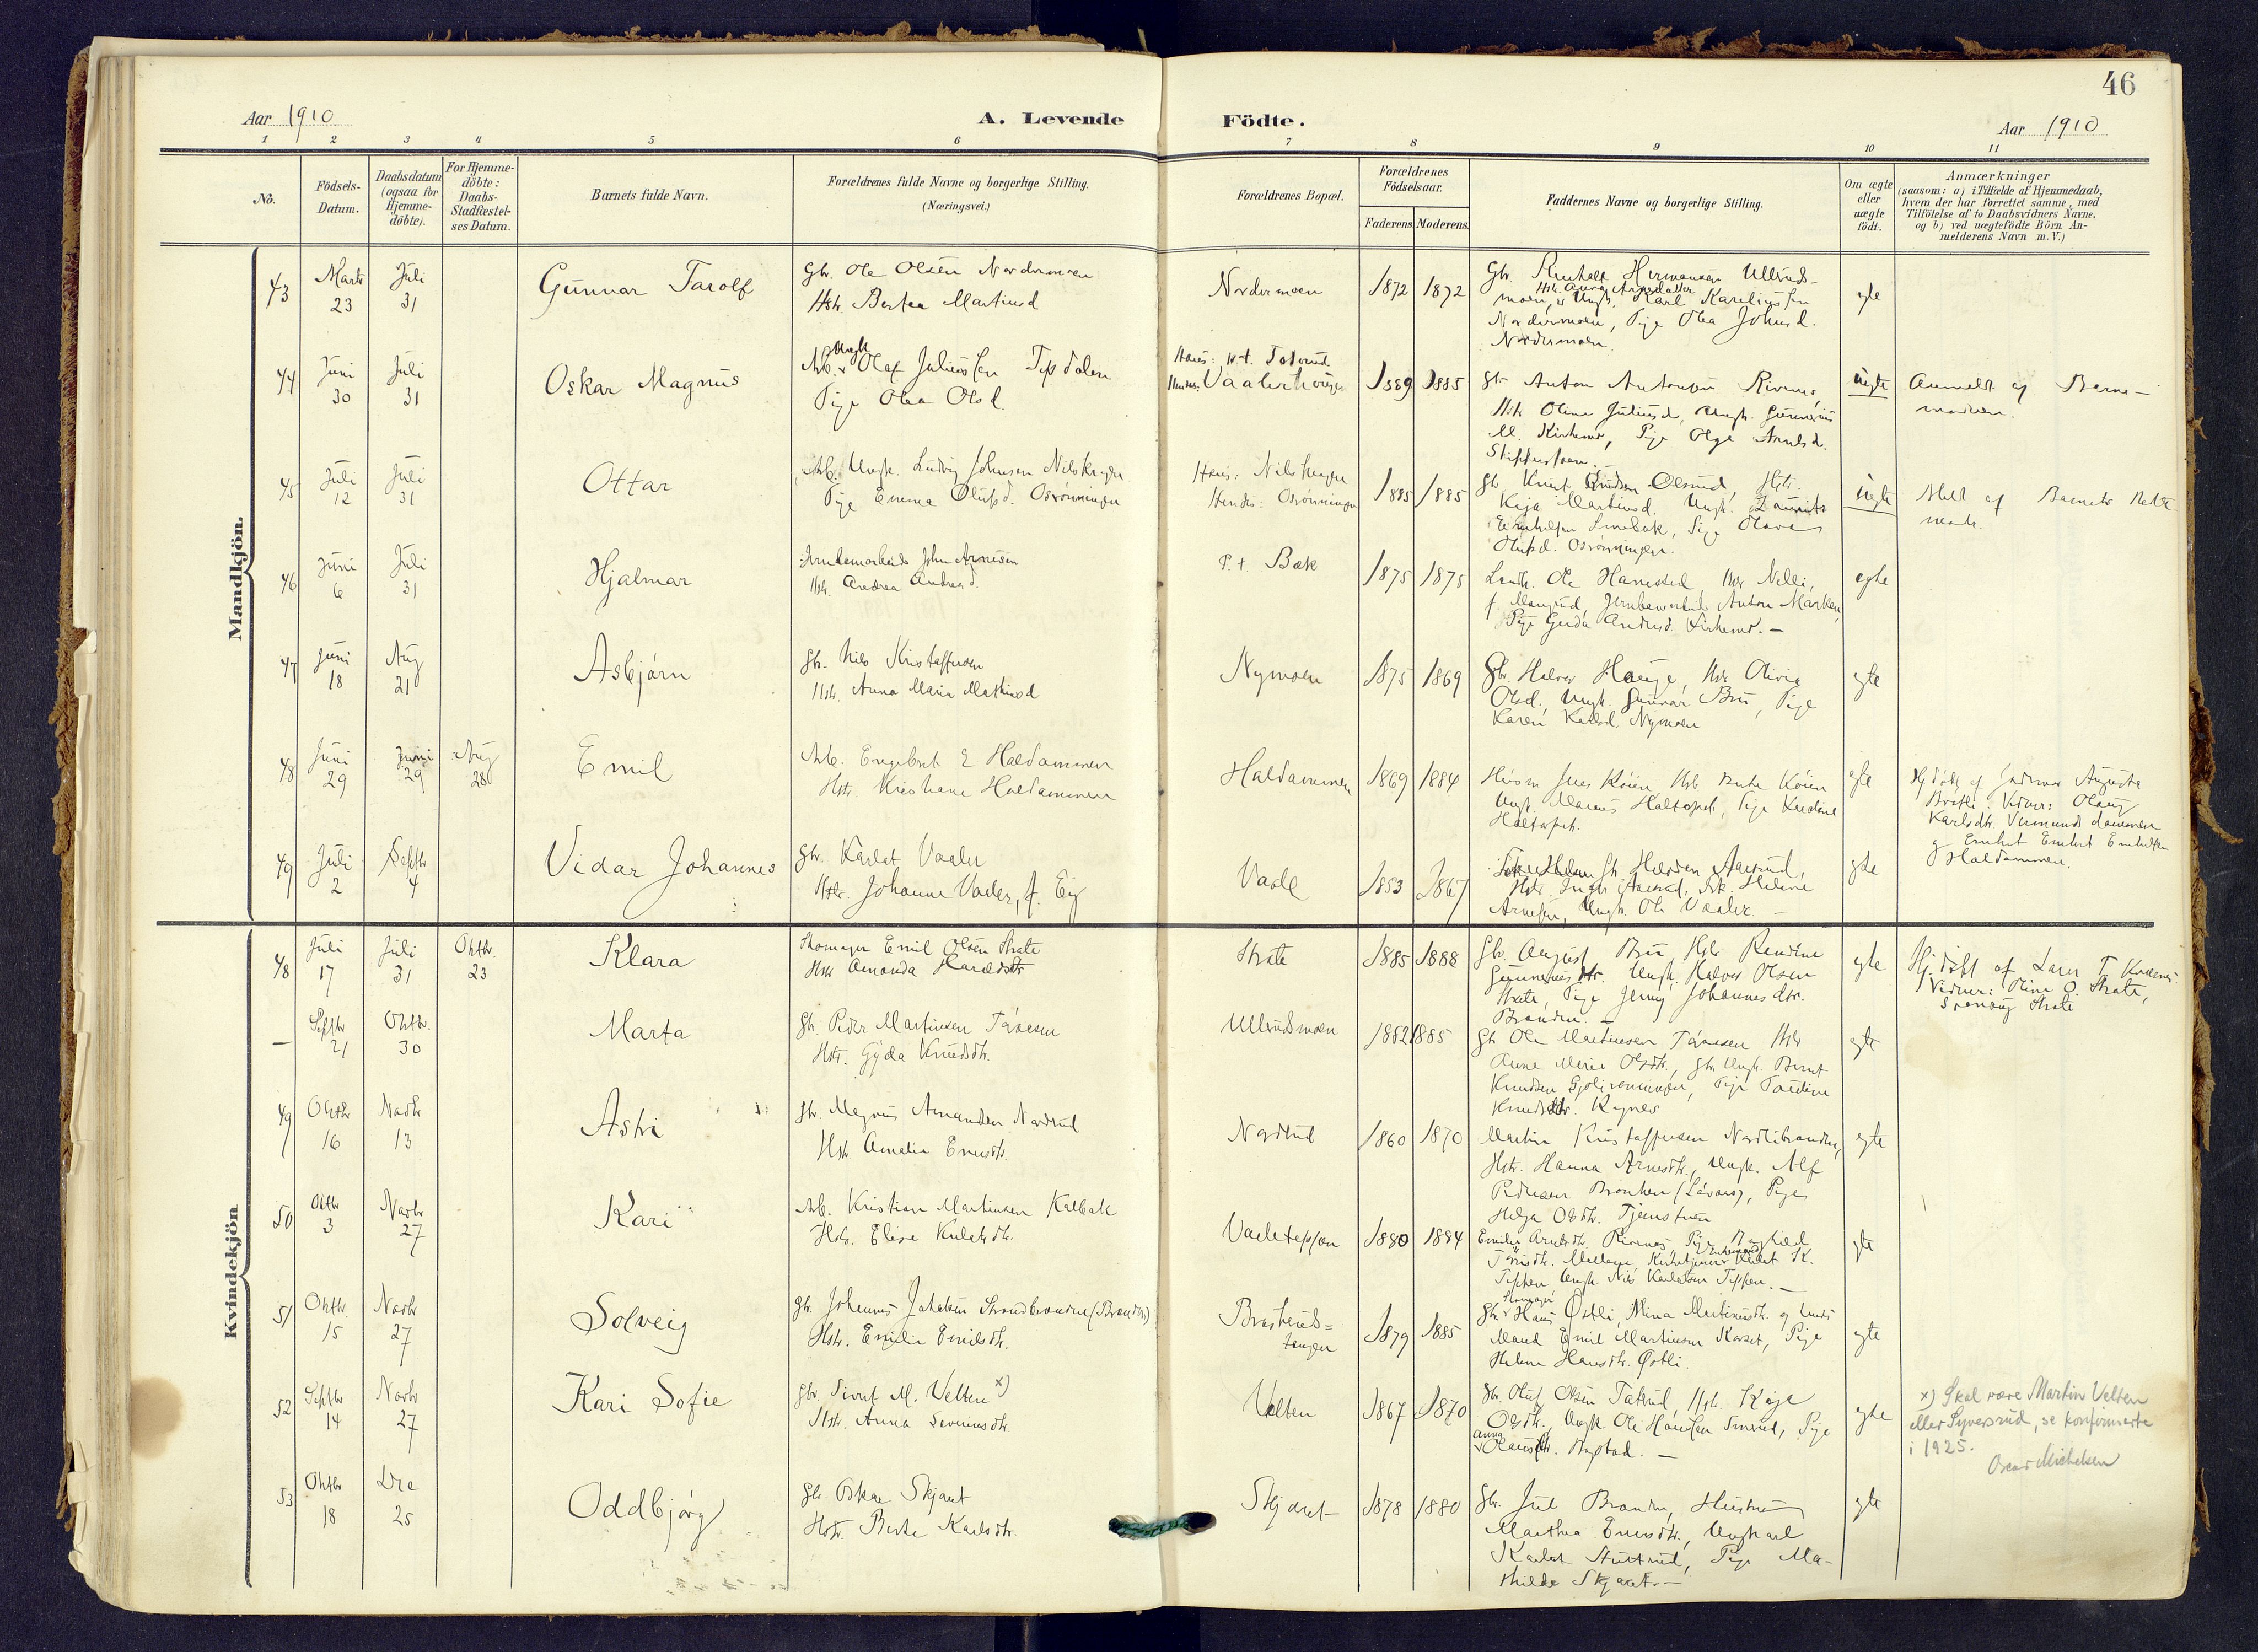 46
Aar 1910
A. Levende Födte.
Aar 1910
1 2 3 4 5 6 7 8 9 10 11
No.
Födsels-
Datum.
Daabsdatum
(ogsaa for
Hjemme-
döbte).
For Hjemme-
döbte:
Daabs-
Stadfæstel-
ses Datum.
Barnets fulde Navn.
Forældrenes fulde Navne og borgerlige Stilling.
(Næringsvei.)
Forældrenes Bopæl.
Forældrenes
Födselsaar.
Faderens Moderens
Faddernes Navne og borgerlige Stilling.
Om ægte
eller
uægte
födt.
Anmærkninger
(saasom: a) i Tilfælde af Hjemmedaab,
hvem der har forrettet samme, med
Tilföielse af to Daabsvidners Navne.
og b) ved uægtefödte Börn An-
melderens Navn m. V.)
Mandkjön.
43
Marts
23
Juli
31
Gunnar Tarolf
Gbr. Ole Olsen Nordermoen
Hstr. Bertea Martinsd
Nordermoen
1872 1872
Hermansen Ulleruds-
moen, Ungk. Karl Kareliussen
Nordermoen, Pige Olea Johnsd.
Nordermoen
egte
44
Juni
30
Juli
31
Oskar Magnus
Arb. Ungk Olaf Juliussen
Pige Olea Olsd.
Hans: p.t.
Hendes: Vaalerhaugen
1889 1885
Gbr Anton Antonsen
Hstr Oline Juliusd, Ungk.
M. Kirkemo, Pige Olga Arnesd.
uegte
Anmeldt af Barne-
moderen.
45
Juli
12
Juli
31
Ottar
Arb. Ungk. Ludvig Johnsen Nilskaugen
Pige Emma Olufsd. Osrönningen
Hans: Nilskaugen
Hendes: Osrönningen
1885 1885
Gbr Knut Knudsen Olsrud, Hstr.
Kaja Martinsd. Ungk. Laurits
Smebak, Pige Olava
Olufsd. Osrönningen.
uegte
Meldt af Barnets
46
Juni
6
Juli
31
Hjalmar
Jernbanearbeider John Arnesen
Hstr. Andrea Andreasd.
P.t. Bæk
1875 1875
Landh. Ole Hanestad, Hstr Nelli,
f. Mangrud, Anton Marken,
Pige Gerda Andresd Kirkemo. —
egte
47
Juni
18
Aug
21
Asbjörn
Gbr. Nils Kristoffersen
Hstr. Anna Maria Mathisd
Nymoen
1875 1869
Gbr. Halvor Hauge, Hstr Olivia
Olsd., Ungk. Gunnar Bru, Pige
Karen Karlsd. Nymoen
egte
48
Juni
29
Juni
29
Aug
28
Emil
Arb. Engebret E Haldammen
Hstr. Kristiane Haldammen
Haldammen
1869 1884
Husm Jens Köien Hstr Berte Köien
Ungk. Marius Haltorpet, Pige Kardine
Haltorpet.
egte
Hjdöbt af Jordmor Augusta
Bratli. Vidner: Olaug
Karlsdtr. Vermundsdammen
Haldammen.
49
Juli
2
Septbr
4
Vidar Johannes
Gbr. Karlot Vaaler
Hstr. Johanne Vaaler, f. Eig
Vaale
1853 1867
Gbr. Halvdan Aaserud,
Hstr. Inga Aaserud, Frk. Helene
Arnesen, Ungk. Ole Vaaler. —
egte
Kvindekjön
48
Juli
17
Juli
31
Oktbr.
23
Klara
Skomager Emil Olsen Strate
Hstr Amanda Haraldsdtr
Strate
1885 1888
Gbr. August Bru Hstr Randine
Gunneriusdtr. Ungk. Halvor Olsen
Strate, Pige Jenny Johannesdtr.
Branden. —
egte
Hj. döbt af Lærer T. Kvernes.
Vidner: Oline O. Strate,
Svanaug Strate
—
Septbr
21
Oktbr.
30
Marta
Gbr. Peder Martinsen Tóraasen
Hstr. Gyda Knudsdtr.
Ullerudsmoen
1882 1885
Gbr Ole Martinsen Tóraasen Hstr
Anne Marie Olsdtr., Gbr. Ungk. Bernt
Knudsen Gjölirönningen, Pige Pauline
Knudsdtr. Kagnes
egte
49
Oktbr
16
Novbr
13
Astri
Gbr. Magnus Amundsen Nordrud
Hstr Amalie Evensdtr.
Nordrud
1860 1870
Martin Kristoffersen Nordlibranden,
Hstr. Hanna Arnesdtr., Ungk. Alf
Pedersen Bronken (Lövaas), Pige
Helga Olsdtr. Tjernstuen
egte
50
Oktbr
3
Novbr
27
Kari
Arb. Kristian Martinsen Kalbak
Hstr. Elise Karlotsdtr.
Vaaleteppen
1880 1884
Emilie Arnesdtr. Pige Ragnhild
Kirketjener Karlot K.
Teppen Ungk. Nils Karlotsen Teppen. —
egte
51
Oktbr.
15
Novbr
27
Solveig
Gbr. Johannes Jakobsen Strandbranden (Branden)
Hstr. Emilie Emilsdtr.
Brasterud=
tangen
1879 1885
Skomager
Gbr v Hans Östli, Mina Martinusdtr. og hendes
Mand Emil Martinsen Korset, Pige
Helene Hansdtr. Östli.
egte
52
Septbr
14
Novbr
27
Kari Sofie
Gbr. Sivert M. Velten x)
Hstr. Anna Severinsdtr.
Velten
1867 1870
Gbr. Oluf Olsen Tatrud, Hstr. Kaja
Olsdtr., Ungk Ole Hansen Smerud, Pige
Anna
v Olausdtr. Bogstad. —
egte
x) Skal være Martin Velten
eller Syversrud, se konfirmerte
i 1925.
Oscar Michelsen
53
Oktbr
18
Dec
25
Oddbjörg
Gbr Oskar Skjæret
Hstr. Berte Karlsdtr.
Skjæret
1878 1880
Gbr. Jul Branden, Hustru
Marthea Evensdtr., Ungkarl
Karlot Stutrud, Pige Ma-
thilde Skjæret. —
egte